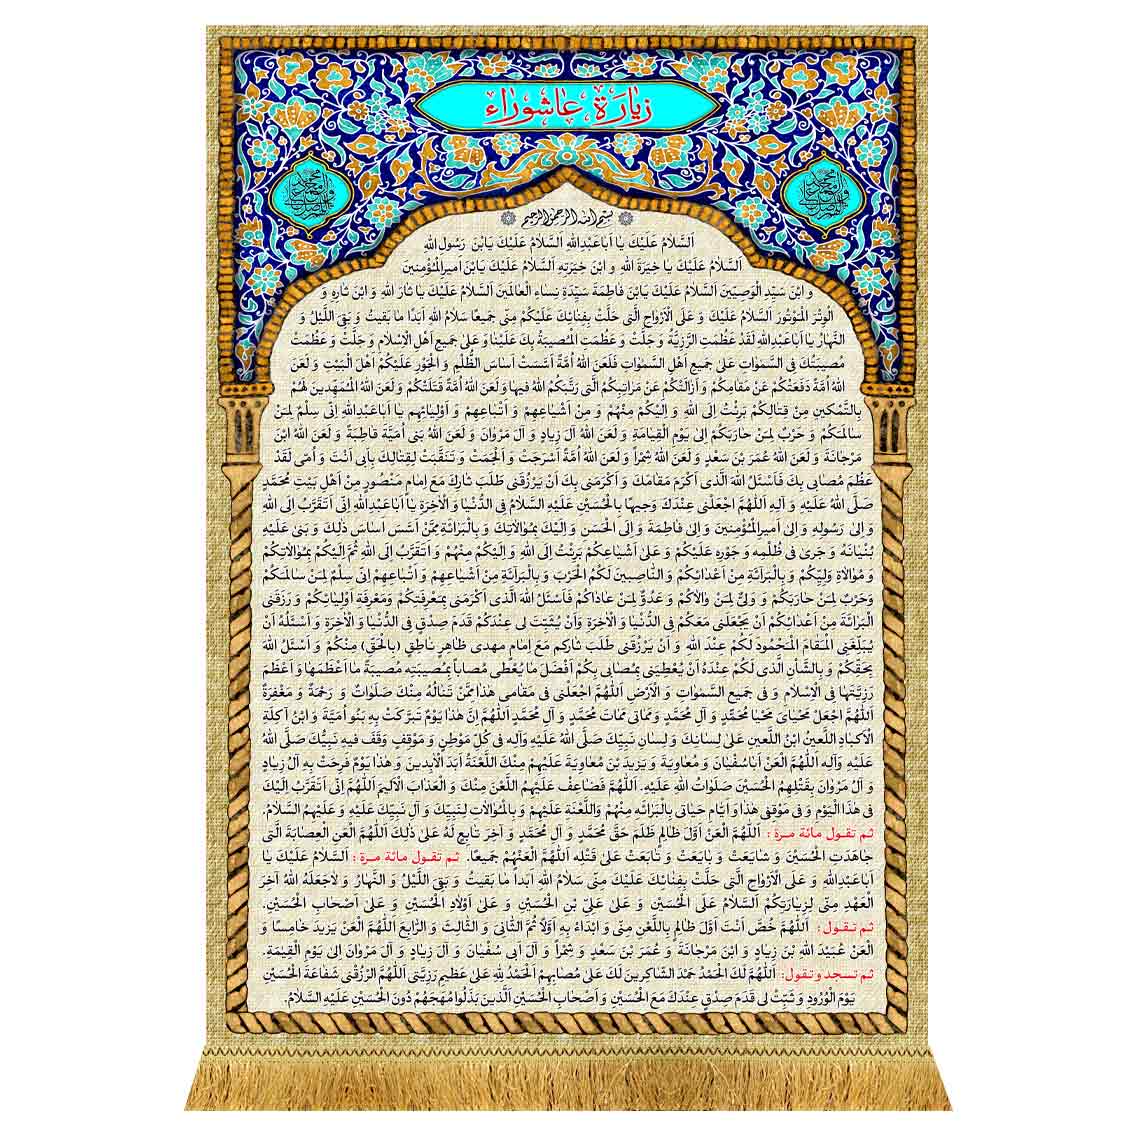 زيارة عاشوراء
بسم الله الرحمن الرحيم
اَلسَّلامُ عَلَيْكَ يا اَباعَبْدِاللهِ اَلسَّلامُ عَلَيْكَ يَابْنَ رَسُولِ اللهِ
اَلسَّلامُ عَلَيْكَ يا خِيَرَةَ اللهِ وَ ابْنَ خِيَرَتِهِ اَلسَّلامُ عَلَيْكَ يَابْنَ اَميرِالْمُؤْمِنينَ
وَ ابْنَ سَيِّدِ الْوَصِيّينَ اَلسَّلامُ عَلَيْكَ يَابْنَ فاطِمَةَ سَيِّدَةِ نِساءِ الْعالَمينَ اَلسَّلامُ عَلَيْكَ يا ثارَ اللهِ وَ ابْنَ ثارِهِ وَ
الْوِتْرَ الْمَوْتُورَ اَلسَّلامُ عَلَيْكَ وَ عَلَى الْاَرْواحِ الَّتى حَلَّتْ بِفِنائِكَ عَلَيْكُمْ مِنّى جَميعًا سَلامُ اللهِ اَبَدًا ما بَقيتُ وَ بَقِىَ اللَّيْلُ وَ
النَّهارُ يا اَباعَبْدِاللهِ لَقَدْ عَظُمَتِ الرَّزِيَّةُ وَ جَلَّتْ وَ عَظُمَتِ الْمُصيبَةُ بِكَ عَلَيْنا وَ عَلى جَميعِ اَهْلِ الْاِسْلامِ وَ جَلَّتْ وَ عَظُمَتْ
مُصيبَتُكَ فِى السَّمٰواتِ عَلى جَميعِ اَهْلِ السَّمٰواتِ فَلَعَنَ اللهُ اُمَّةً اَسَّسَتْ اَساسَ الظُّلْمِ وَ الْجَوْرِ عَلَيْكُمْ اَهْلَ الْبَيْتِ وَ لَعَنَ
اللهُ اُمَّةً دَفَعَتْكُمْ عَنْ مَقامِكُمْ وَ اَزالَتْكُمْ عَنْ مَراتِبِكُمُ الَّتى رَتَّبَكُمُ اللهُ فيها وَ لَعَنَ اللهُ اُمَّةً قَتَلَتْكُمْ وَ لَعَنَ اللهُ الْمُمَهِّدينَ لَهُمْ
بِالتَّمْكينِ مِنْ قِتالِكُمْ بَرِئْتُ اِلَى اللهِ وَ اِلَيْكُمْ مِنْهُمْ وَ مِنْ اَشْياعِهِمْ وَ اَتْباعِهِمْ وَ اَوْلِيائِهِمْ يا اَباعَبْدِاللهِ اِنّى سِلْمٌ لِمَنْ
سالَمَكُمْ وَ حَرْبٌ لِمَنْ حارَبَكُمْ اِلى يَوْمِ الْقِيامَةِ وَ لَعَنَ اللهُ آلَ زِيادٍ وَ آلَ مَرْوانَ وَ لَعَنَ اللهُ بَنى اُمَيَّةَ قاطِبَةً وَ لَعَنَ اللهُ ابْنَ
مَرْجانَةَ وَ لَعَنَ اللهُ عُمَرَ بْنَ سَعْدٍ وَ لَعَنَ اللهُ شِمْرًا وَ لَعَنَ اللهُ اُمَّةً اَسْرَجَتْ وَ اَلْجَمَتْ وَ تَنَقَّبَتْ لِقِتالِكَ بِاَبى اَنْتَ وَ اُمّى لَقَدْ
عَظُمَ مُصابى بِكَ فَاَسْئَلُ اللهَ الَّذى اَكْرَمَ مَقامَكَ وَ اَكْرَمَنى بِكَ اَنْ يَرْزُقَنى طَلَبَ ثارِكَ مَعَ اِمامٍ مَنْصُورٍ مِنْ اَهْلِ بَيْتِ مُحَمَّدٍ
صَلَّى اللهُ عَلَيْهِ وَ آلِهِ اَللّهُمَّ اجْعَلْنى عِنْدَكَ وَجيهًا بِالْحُسَيْنِ عَلَيْهِ السَّلامُ فِى الدُّنْيا وَ الْاخِرَةِ يا اَباعَبْدِاللهِ اِنّى اَتَقَرَّبُ اِلَى اللهِ
وَ اِلى رَسُولِهِ وَ اِلى اَميرِالْمُؤْمِنينَ وَ اِلى فاطِمَةَ وَ اِلَى الْحَسَنِ وَ اِلَيْكَ بِمُوالاتِكَ وَ بِالْبَرائَةِ مِمَّنْ اَسَّسَ اَساسَ ذٰلِكَ وَ بَنى عَلَيْهِ
بُنْيانَهُ وَ جَرى فى ظُلْمِهِ وَ جَوْرِهِ عَلَيْكُمْ وَ عَلى اَشْياعِكُمْ بَرِئْتُ اِلَى اللهِ وَ اِلَيْكُمْ مِنْهُمْ وَ اَتَقَرَّبُ اِلَى اللهِ ثُمَّ اِلَيْكُمْ بِمُوالاتِكُمْ
وَ مُوالاةِ وَلِيِّكُمْ وَ بِالْبَرآئَةِ مِنْ اَعْدائِكُمْ وَ النّاصِبينَ لَكُمُ الْحَرْبَ وَ بِالْبَرآئَةِ مِنْ اَشْياعِهِمْ وَ اَتْباعِهِمْ اِنّى سِلْمٌ لِمَنْ سالَمَكُمْ
وَ حَرْبٌ لِمَنْ حارَبَكُمْ وَ وَلِىٌّ لِمَنْ والاكُمْ وَ عَدُوٌّ لِمَنْ عاداكُمْ فَاَسْئَلُ اللهَ الَّذى اَكْرَمَنى بِمَعْرِفَتِكُمْ وَ مَعْرِفَةِ اَوْلِيائِكُمْ وَ رَزَقَنِى
الْبَرائَةَ مِنْ اَعْدائِكُمْ اَنْ يَجْعَلَنى مَعَكُمْ فِى الدُّنْيا وَ الْاخِرَةِ وَ اَنْ يُثَبِّتَ لى عِنْدَكُمْ قَدَمَ صِدْقٍ فِى الدُّنْيا وَ الْاخِرَةِ وَ اَسْئَلُهُ اَنْ
يُبَلِّغَنِى الْمَقامَ الْمَحْمُودَ لَكُمْ عِنْدَ اللهِ وَ اَنْ يَرْزُقَنى طَلَبَ ثارِكم مَعَ اِمامٍ مهدى ظاهِرٍ ناطِقٍ (بِالْحَقِّ) مِنْكُمْ وَ اَسْئَلُ اللهَ
بِحَقِّكُمْ وَ بِالشَّأنِ الَّذى لَكُمْ عِنْدَهُ اَنْ يُعْطِيَنى بِمُصابى بِكُمْ اَفْضَلَ ما يُعْطى مُصاباً بِمُصيبَتِهِ مُصيبَةً ما اَعْظَمَها وَ اَعْظَمَ
رَزِيَّتَها فِى الْاِسْلامِ وَ فى جَميعِ السَّمٰواتِ وَ الْاَرْضِ اَللّهُمَّ اجْعَلْنى فى مَقامى هٰذا مِمَّنْ تَنالُهُ مِنْكَ صَلَواتٌ وَ رَحْمَةٌ وَ مَغْفِرَةٌ
اَللّهُمَّ اجْعَلْ مَحْياىَ مَحْيا مُحَمَّدٍ وَ آلِ مُحَمَّدٍ وَ مَماتى مَماتَ مُحَمَّدٍ وَ آلِ مُحَمَّدٍ اَللّهُمَّ اِنَّ هٰذا يَوْمٌ تَبَرَّكَتْ بِهِ بَنُو اُمَيَّةَ وَ ابْنُ آكِلَةِ
الْاَكبادِ اللَّعينُ ابْنُ اللَّعينِ عَلى لِسانِكَ وَ لِسانِ نَبِيِّكَ صَلَّى اللهُ عَلَيْهِ وَآلِهِ فى كُلِّ مَوْطِنٍ وَ مَوْقِفٍ وَقَفَ فيهِ نَبِيُّكَ صَلَّى اللهُ
عَلَيْهِ وَآلِهِ اَللّهُمَّ الْعَنْ اَباسُفْيانَ وَ مُعاوِيَةَ وَ يَزيدَ بْنَ مُعاوِيَةَ عَلَيْهِمْ مِنْكَ اللَّعْنَةُ اَبَدَ الْابِدينَ وَ هٰذا يَوْمٌ فَرِحَتْ بِهِ آلُ زِيادٍ
وَ آلُ مَرْوانَ بِقَتْلِهِمُ الْحُسَيْنَ صَلَواتُ اللهِ عَلَيْهِ. اَللّهُمَّ فَضاعِفْ عَلَيْهِمُ اللَّعْنَ مِنْكَ وَ الْعَذابَ الْاَليمَ اَللّهُمَّ اِنّى اَتَقَرَّبُ اِلَيْكَ
فى هٰذَا الْيَوْمِ وَ فى مَوْقِفى هٰذا وَ اَيّامِ حَياتى بِالْبَرائَةِ مِنْهُمْ وَ اللَّعْنَةِ عَلَيْهِمْ وَ بِالْمُوالاتِ لِنَبِيِّكَ وَ آلِ نَبِيِّكَ عَلَيْهِ وَ عَلَيْهِمُ السَّلامُ.
ثم تقول مائة مرة: اَللّهُمَّ الْعَنْ اَوَّلَ ظالِمٍ ظَلَمَ حَقَّ مُحَمَّدٍ وَ آلِ مُحَمَّدٍ وَ آخِرَ تابِعٍ لَهُ عَلى ذٰلِكَ اَللّهُمَّ الْعَنِ الْعِصابَةَ الَّتى
جاهَدَتِ الْحُسَيْنَ وَ شايَعَتْ وَ بايَعَتْ وَ تابَعَتْ عَلى قَتْلِهِ اَللّهُمَّ الْعَنْهُمْ جَميعًا. ثم تقول مائة مرة: اَلسَّلامُ عَلَيْكَ يا
اَباعَبْدِاللهِ وَ عَلَى الْاَرْواحِ الَّتى حَلَّتْ بِفِنائِكَ عَلَيْكَ مِنّى سَلامُ اللهِ اَبَداً ما بَقيتُ وَ بَقِىَ اللَّيْلُ وَ النَّهارُ وَ لا جَعَلَهُ اللهُ آخِرَ
الْعَهْدِ مِنّى لِزِيارَتِكُمْ اَلسَّلامُ عَلَى الْحُسَيْنِ وَ عَلى عَلِىِّ بْنِ الْحُسَيْنِ وَ عَلى اَوْلادِ الْحُسَيْنِ وَ عَلى اَصْحابِ الْحُسَيْنِ.
ثم تقول: اَللّهُمَّ خُصَّ اَنْتَ اَوَّلَ ظالِمٍ بِاللَّعْنِ مِنّى وَ ابْدَاءْ بِهِ اَوَّلًا ثُمَّ الثّانِىَ وَ الثّالِثَ وَ الرّابِعَ اَللّهُمَّ الْعَنْ يَزيدَ خامِسًا وَ
الْعَنْ عُبَيْدَ اللهِ بْنَ زِيادٍ وَ ابْنَ مَرْجانَةَ وَ عُمَرَ بْنَ سَعْدٍ وَ شِمْرًا وَ آلَ اَبى سُفْيانَ وَ آلَ زِيادٍ وَ آلَ مَرْوانَ اِلى يَوْمِ الْقِيمَةِ.
ثم تسجد و تقول: اَللّهُمَّ لَكَ الْحَمْدُ حَمْدَ الشّاكِرينَ لَكَ عَلى مُصابِهِمْ اَلْحَمْدُ لِلهِ عَلى عَظيمِ رَزِيَّتى اَللّهُمَّ ارْزُقْنى شَفاعَةَ الْحُسَيْنِ
يَوْمَ الْوُرُودِ وَ ثَبِّتْ لى قَدَمَ صِدْقٍ عِنْدَكَ مَعَ الْحُسَيْنِ وَ اَصْحابِ الْحُسَيْنِ اَلَّذينَ بَذَلُوا مُهَجَهُمْ دُونَ الْحُسَيْنِ عَلَيْهِ السَّلامُ.